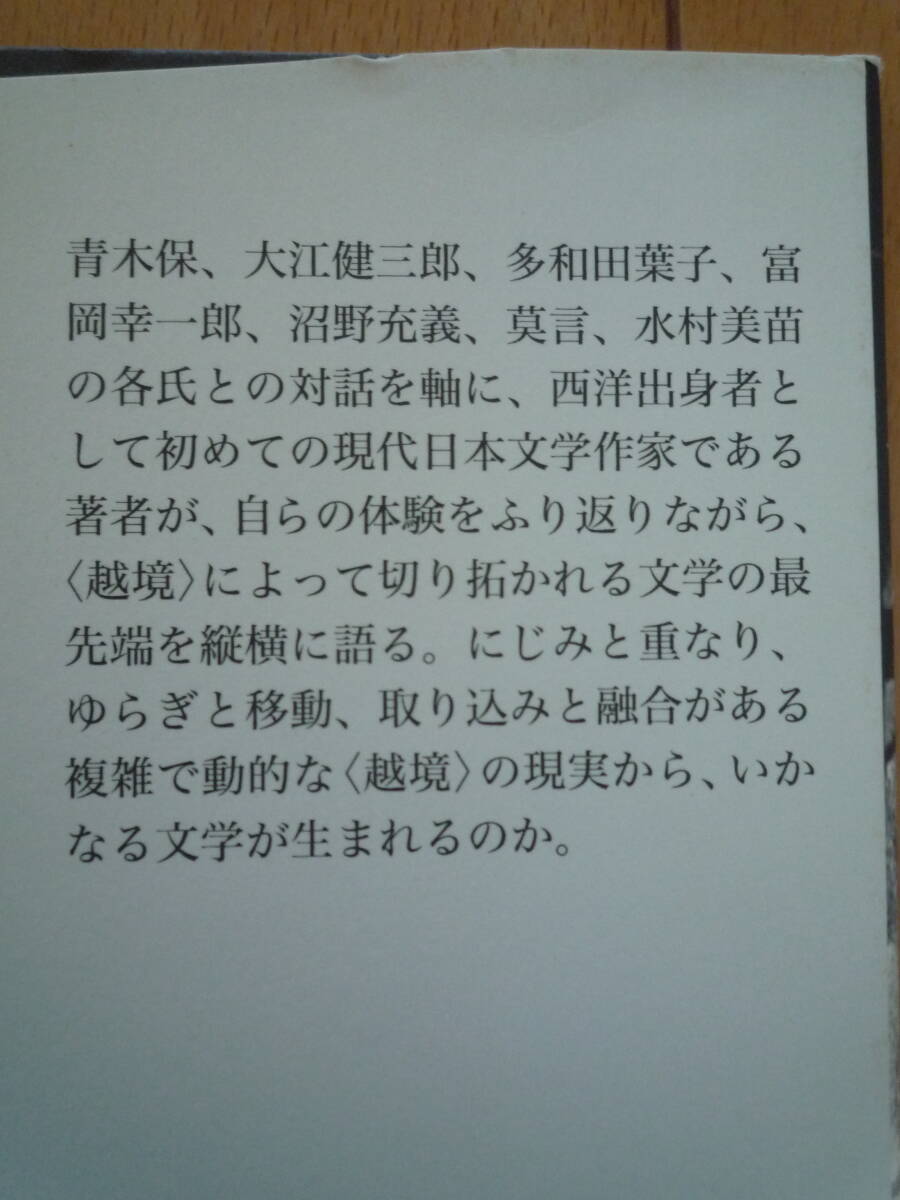 青木保、大江健三郎、多和田葉子、富
岡幸一郎、沼野充義、莫言、水村美苗
の各氏との対話を軸に、西洋出身者と
して初めての現代日本文学作家である
著者が、自らの体験をふり返りながら、
〈越境〉によって切り拓かれる文学の最
先端を縦横に語る。にじみと重なり、
ゆらぎと移動、取り込みと融合がある
複雑で動的な〈越境〉の現実から、いか
なる文学が生まれるのか。